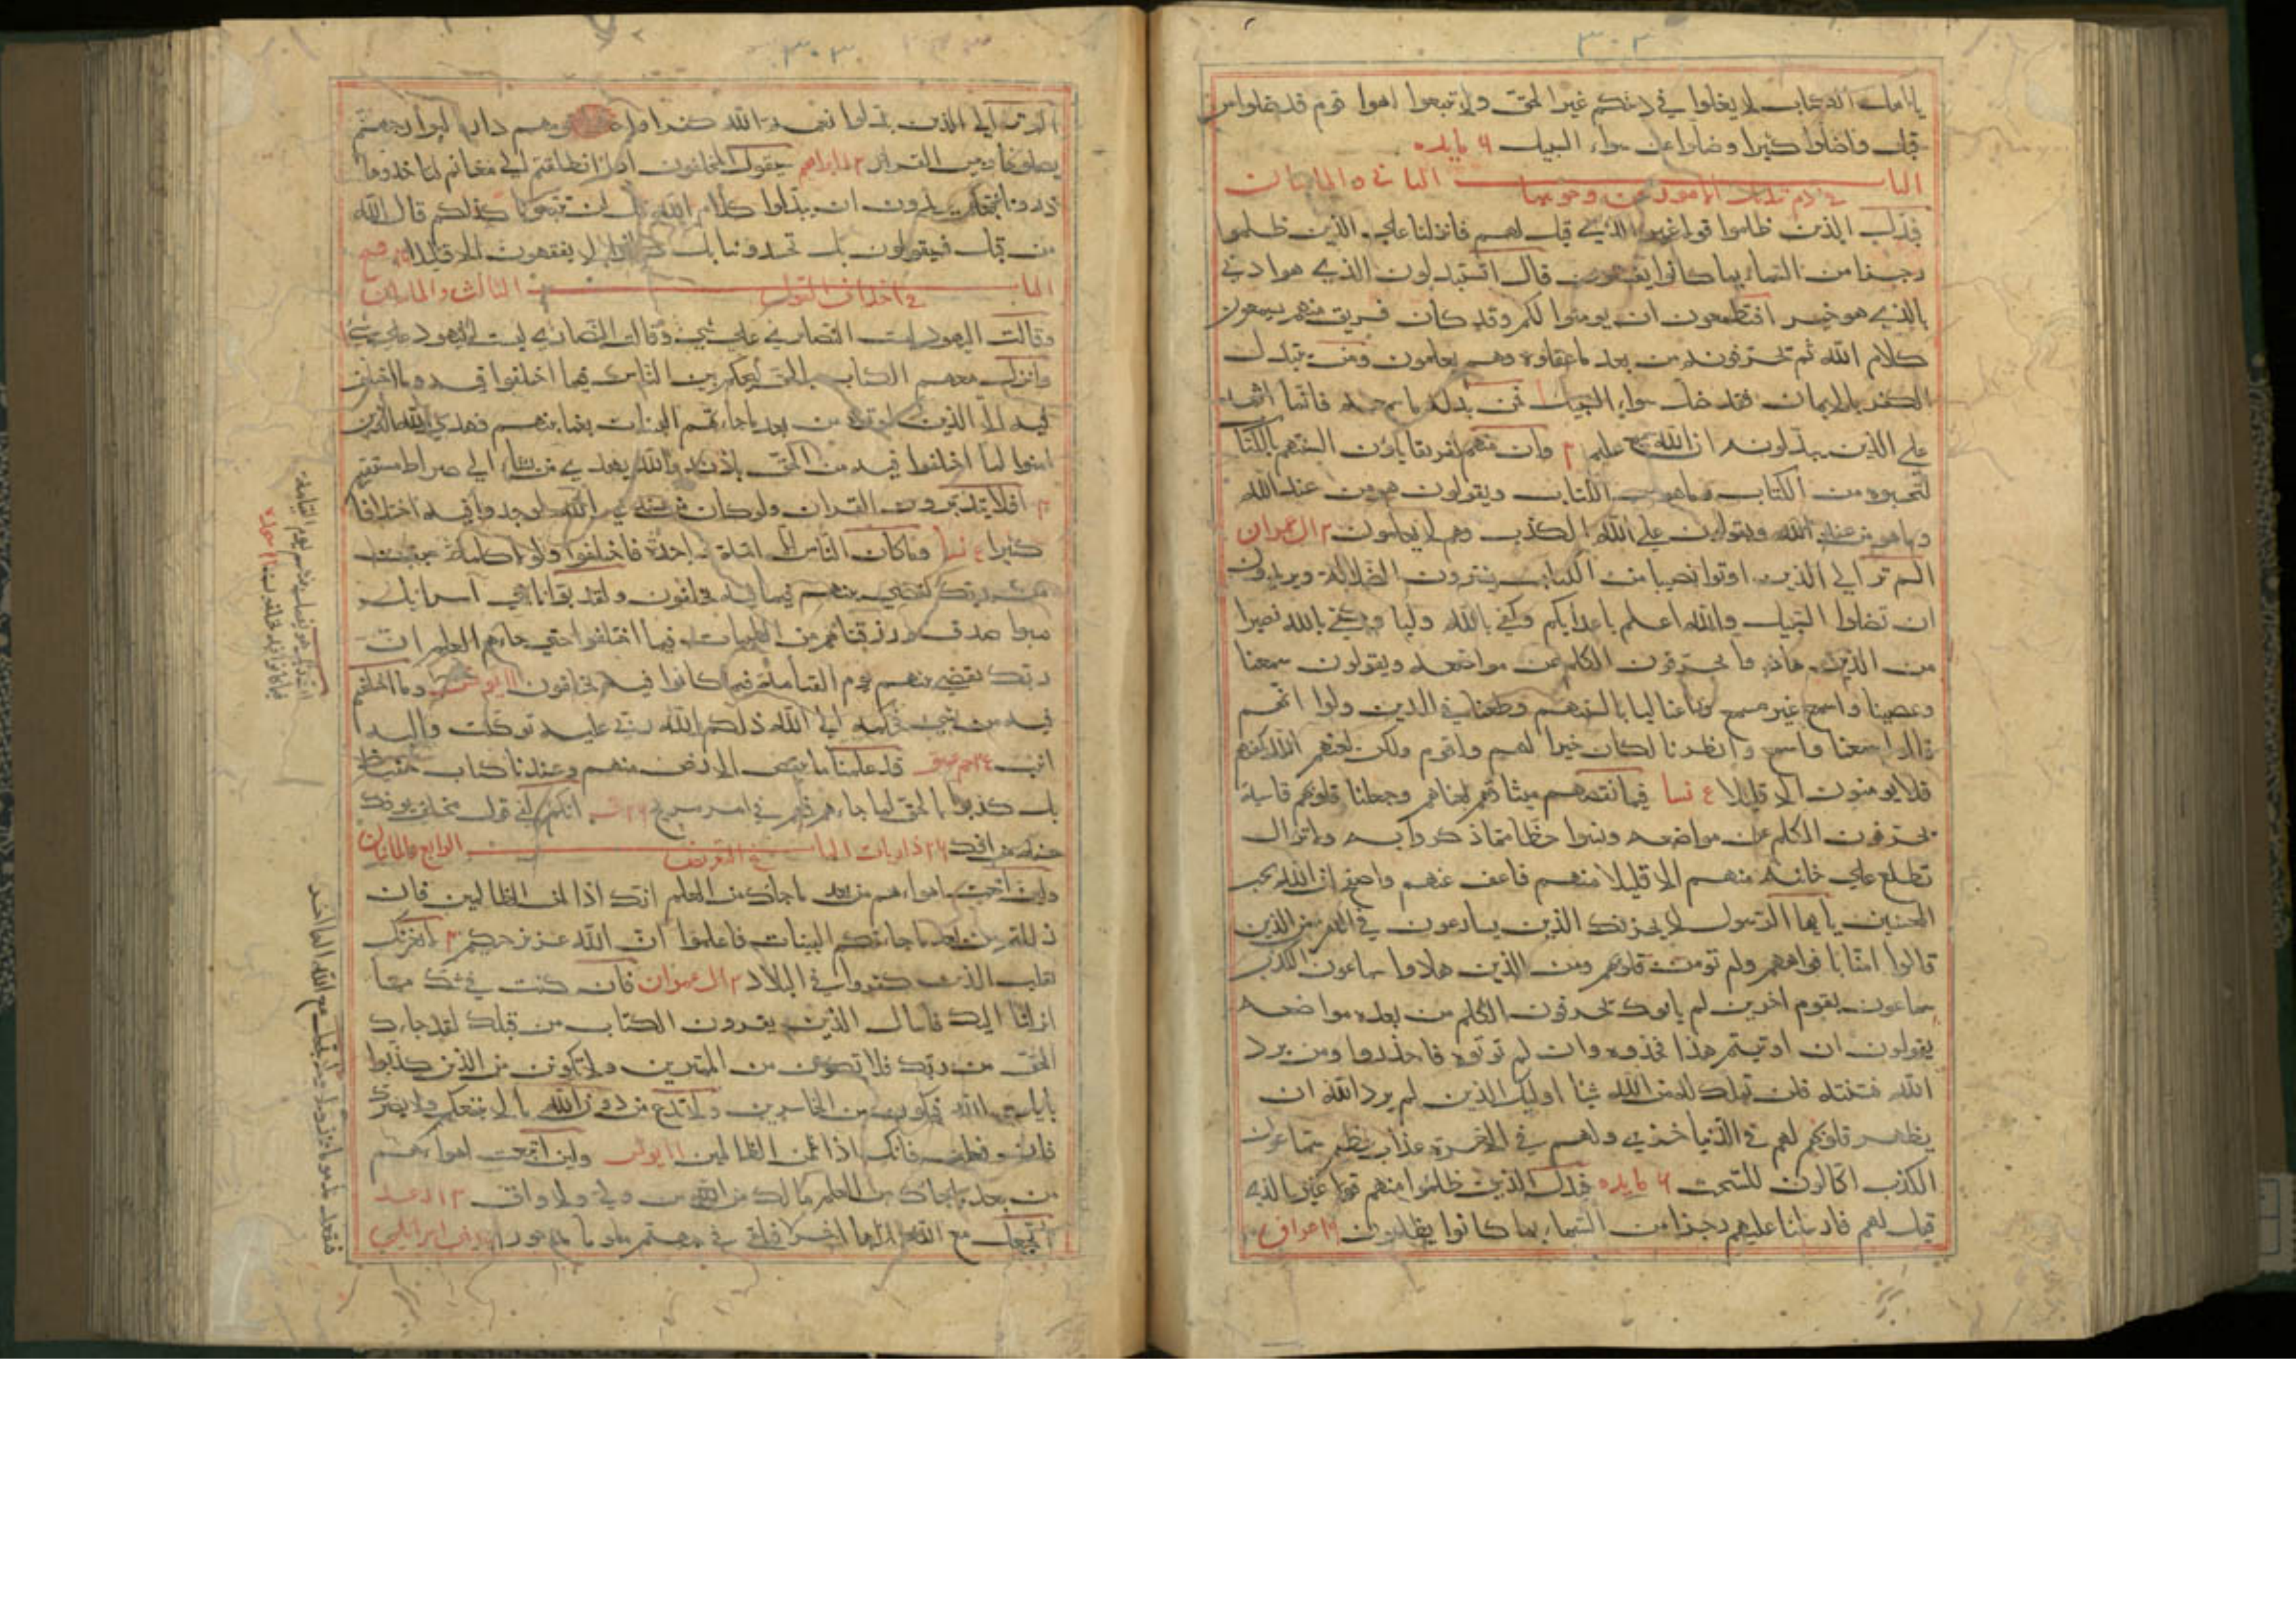 ٣٠٢
يا اهل الكتاب لا يغلوا في دينكم غير الحق ولا تتبعوا اهوا قوم قد ضلوا من
قبل واضلوا كثيرا وضلوا عن سواء السبيل ٦ مايده
الباب الثاني والماتان
في ذم تبديل الامور عن وجوهها
فبدل الذين ظلموا قولا غير الذي قيل لهم فانزلنا علي الذين ظلموا
رجزا من السماء بما كانوا يفسقون قال اتستبدلون الذي هو ادني
بالذي هو خير افتطمعون ان يومنوا لكم وقد كان فريق منهم يسمعون
كلام الله ثم يحرفونه من بعد ما عقلوه وهم يعلمون ومن يتبدل
الكفر بالايمان فقد ضل سواء السبيل فمن بدله ما سمعه فانما اثمه
علي الذين يبدلونه ان الله سميع عليم ٢ وان منهم لفريقا يلون السنتهم بالكتاب
لتحسبوه من الكتاب وما هو من الكتاب ويقولون هو من عند الله
وما هو من عند الله ويقولون علي الله الكذب وهم لا يعلمون ٣ ال عمران
الم تر الي الذين اوتوا نصيبا من الكتاب يشترون الضلالة ويريدون
ان تضلوا السبيل والله اعلم باعدايكم وكفي بالله وليا وكفي بالله نصيرا
من الذين هادوا يحرفون الكلم عن مواضعه ويقولون سمعنا
وعصينا واسمع غير مسمع وراعنا ليا بالسنتهم وطعنا في الدين ولوا انهم
قالوا سمعنا واسمع وانظرنا لكان خيرا لهم واقوم ولكن لعنهم الله بكفرهم
فلا يومنون الا قليلا ٤ نسا فبما نقضهم ميثاقهم لعناهم وجعلنا قلوبهم قاسية
يحرفون الكلم عن مواضعه ونسوا حظا مما ذكروا به ولا تزال
تطلع علي خائنة منهم الا قليلا منهم فاعف عنهم واصفح ان الله يحب
المحسنين يا ايها الرسول لا يحزنك الذين يسارعون في الكفر من الذين
قالوا امنا بافواههم ولم تومن قلوبهم ومن الذين هادوا سماعون للكذب
سماعون لقوم اخرين لم ياتوك يحرفون الكلم من بعد مواضعه
يقولون ان اوتيتم هذا فخذوه وان لم توتوه فاحذروا ومن يرد
الله فتنته فلن تملك له من الله شيا اوليك الذين لم يرد الله ان
يطهر قلوبهم لهم في الدنيا خزي ولهم في الاخرة عذاب عظيم سماعون
الكذب اكالون للسحت ٦ مايده فبدل الذين ظلموا منهم قولا غير الذي
قيل لهم فارسلنا عليهم رجزا من السماء بما كانوا يظلمون ٩ اعراف
٣٠٣
الم تر الي الذين بدلوا نعمة الله كفرا واحلوا قومهم دار البوار جهنم
يصلونها وبيس القرار ١٣ ابراهيم سيقول المخلفون اذا انطلقتم الي مغانم لتاخذوها
ذرونا نتبعكم يريدون ان يبدلوا كلام الله قل لن تتبعونا كذلكم قال الله
من قبل فيقولون بل تحسدوننا بل كانوا لا يفقهون الا قليلا فتح
الباب الثالث والماتان
في اختلاف القول
وقالت اليهود ليست النصاري علي شي وقالت النصاري ليست اليهود علي شي
وانزل معهم الكتاب بالحق ليحكم بين الناس فيما اختلفوا فيه وما اختلف
فيه الا الذين اوتوه من بعد ما جاءتهم البينات بغيا بينهم فهدي الله الذين
امنوا لما اختلفوا فيه من الحق باذنه والله يهدي من يشاء الي صراط مستقيم
٢ افلا يتدبرون القران ولو كان من عند غير الله لوجدوا فيه اختلافا
كثيرا ٤ نسا وما كان الناس الا امة واحدة فاختلفوا ولولا كلمة سبقت
من ربك لقضي بينهم فيما فيه يختلفون ولقد بوانا بني اسرايل
مبوا صدق ورزقناهم من الطيبات فما اختلفوا حتي جاءهم العلم ان
ربك يقضي بينهم يوم القيامة فيما كانوا فيه يختلفون ١١ يونس وما اختلفتم
فيه من شي فحكمه الي الله ذلكم الله ربي عليه توكلت واليه
انيب قد علمنا ما تنقص الارض منهم وعندنا كتاب حفيظ
بل كذبوا بالحق لما جاءهم فهم في امر مريج ٢٦ ق انكم لفي قول مختلف يوفك
عنه من افك ٢٦ ذاريات الباب الرابع والماتان
في التعريف
ولين اتبعت اهواءهم من بعد ما جاءك من العلم انك اذا لمن الظالمين فان
زللتم من بعد ما جاءتكم البينات فاعلموا ان الله عزيز حكيم ٢ لا يغرنك
تقلب الذين كفروا في البلاد ٣ ال عمران فان كنت في شك مما
انزلنا اليك فاسال الذين يقرون الكتاب من قبلك لقد جاءك
الحق من ربك فلا تكونن من الممترين ولا تكونن من الذين كذبوا
بايات الله فتكون من الخاسرين ولا تدع من دون الله ما لا ينفعك ولا يضرك
فان فعلت فانك اذا لمن الظالمين ١١ يونس ولين اتبعت اهواءهم
من بعد ما جاءك من العلم ما لك من الله من ولي ولا واق ١٣ الرعد
لا تجعل مع الله الها اخر فتلقي في جهنم ملوما مدحورا